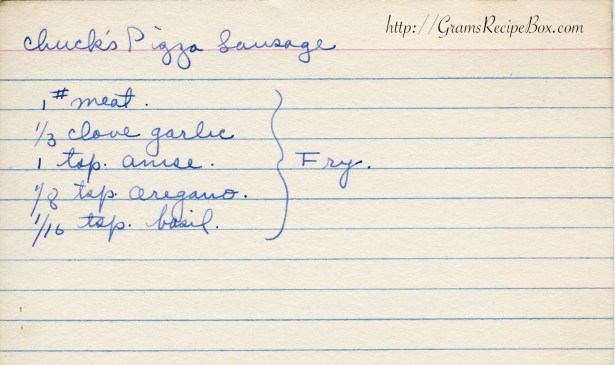 http://GramsRecipeBox.com
Chuck's Pizza Sausage
1 # meat.
1/3 clove garlic
1 tsp. anise.
1/8 tsp. oregano.
1/16 tsp. basil.
Fry.